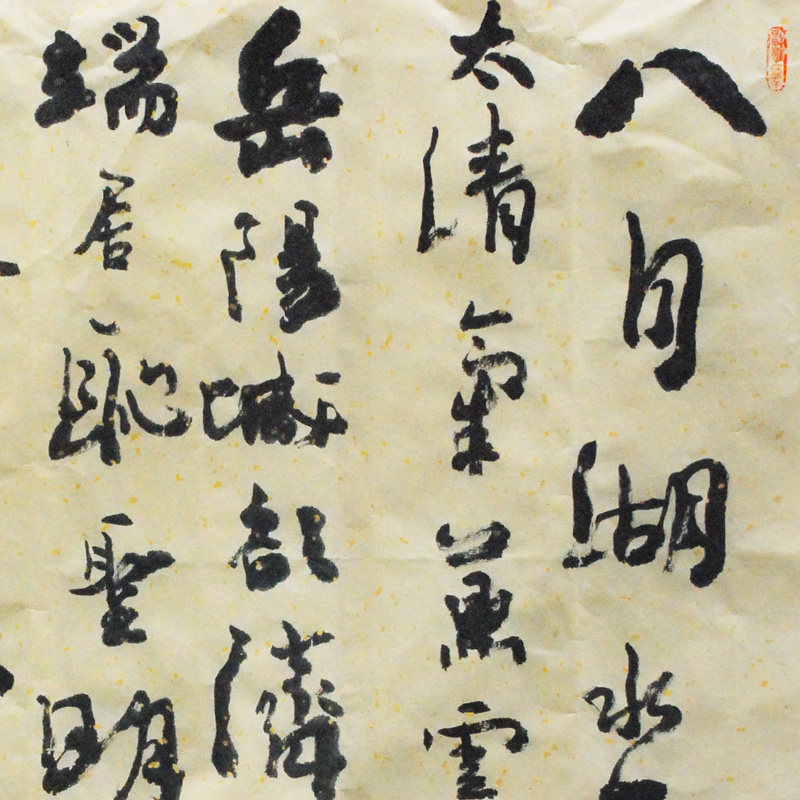 八月湖水
太清氣蒸雲
岳陽城欲濟
端居恥聖明